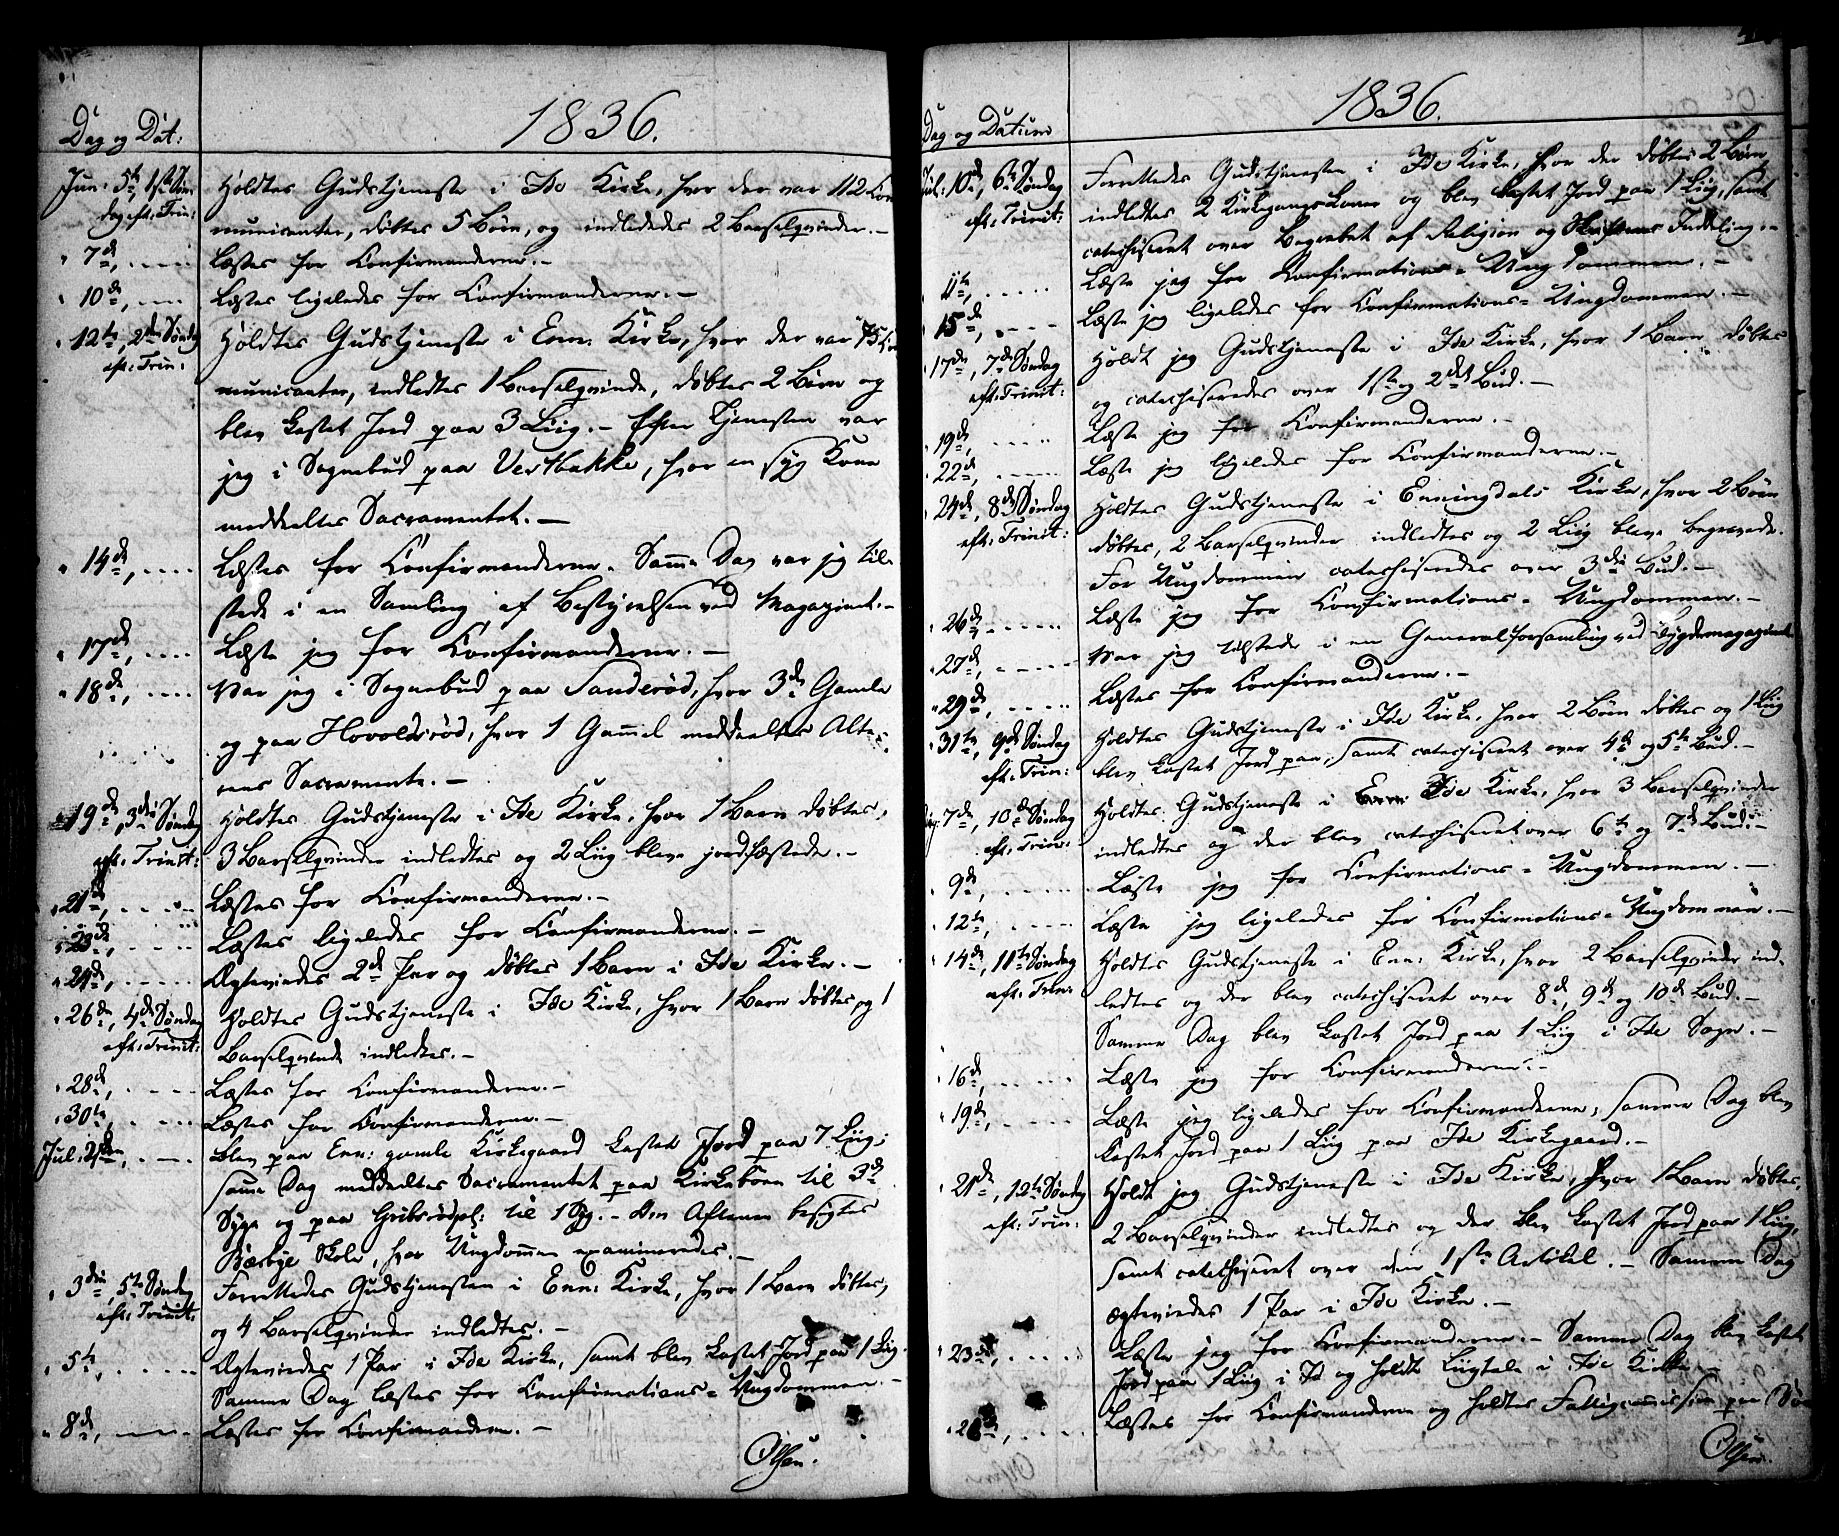 1836.
Dag og Dat:
Jun: 5te, 1ste Søn
dag eft: Trin:
Holdtes Gudstjeneste i Ide Kirke, hvor der var 112 Com
municanter, døbtes 5 Børn, og indlededes 2 Barselqvinder. –
" 7de,
Læstes for Confirmanderne. –
" 10de,
Læstes ligeledes for Confirmanderne. –
" 12te, 2den Søndag
eft: Trin:
Holdtes Gudstjeneste i Enn: Kirke, hvor der var 75 Com
municanter, indledtes 1 Barselqvinde, døbtes 2 Børn og
blev kastet Jord paa 3 Liig. – Efter Tjenesten var
jeg i Sognebud paa Vestbakke, hvor en syg Kone
meddeeltes Sacramentet. –
" 14de,
Læstes for Confirmanderne. Samme Dag var jeg til
stede i en Samling af Bestyrelsen ved Magazinet. –
" 17de,
Læste jeg for Confirmanderne. –
" 18de,
Var jeg i Sognebud paa Sanderød, hvor 3de Gamle
og paa Hovoldsrød, hvor 1 Gammel meddeeltes Alte
rens Sacramente. –
" 19de, 3die Søndag
eft: Trinit:
Holdtes Gudstjeneste i Ide Kirke, hvor 1 Barn døbtes,
3 Barselqvinder indledtes og 2 Liig bleve jordfæstede. –
" 21de,
Læstes for Confirmanderne. –
" 23de,
Læstes ligeledes for Confirmanderne. –
" 24de,
Ægteviedes 2de Par og døbtes 1 Barn i Ide Kirke. –
" 26de, 4de Søndag
eft: Trinit:
Holdtes Gudstjeneste i Ide Kirke, hvor 1 Barn døbtes, og 1
Barselqvinde indledtes. –
" 28de,
Læstes for Confirmanderne. –
" 30te,
Læstes for Confirmanderne. –
Jul: 2den,
Blev paa Enn: gamle Kirkegaard kastet Jord paa 7 Liig;
samme Dag meddeeltes Sacramentet paa Kirkebøen til 3de
Syge og paa til 1 Syg. – Om Aftenen besøgtes
Bærbye Skole, hvor Ungdommen examineredes. –
" 3die, 5te Søndag
eft: Trinit:
Forrettedes Gudstjenesten i Enn: Kirke, hvor 1 Barn døbtes,
og 4 Barselqvinder indledtes. –
" 5te,
Ægteviedes 1 Par i Ide Kirke, samt blev kastet Jord paa 1 Liig.
Samme Dag læstes for Confirmations-Ungdommen. –
" 8de,
Læstes for Confirmanderne. –
Olsen.
1836.
Dag og Datum
Jul: 10de, 6te Søndag
eft: Trinit:
Forrettedes Gudstjeneste i Ide Kirke, hvor der døbtes 2 Børn,
indledtes 2 Kirkegangskoner og blev kastet Jord paa 1 Liig, samt
catechiseret over Begrebet af Religion og Skriftens Inddeling. –
" 11te,
Læste jeg for Konfirmations-Ungdommen. –
" 15de,
Læste jeg ligeledes for Confirmations-Ungdommen. –
" 17de, 7de Søndag
eft: Trinit:
Holdt jeg Gudstjeneste i Ide Kirke, hvor 1 Barn døbtes
og catechiseredes over 1ste og 2det Bud. –
" 19de,
Læste jeg for Confirmanderne. –
" 22de,
Læste jeg ligeledes for Confirmanderne. –
" 24de, 8de Søndag
eft: Trinit:
Holdtes Gudstjeneste i Enningdals Kirke, hvor 2 Børn
døbtes, 2 Barselqvinder indledtes og 2 Liig bleve begravede.
For Ungdommen catechiseredes over 3die Bud. –
" 26de,
Læste jeg for Confirmations-Ungdommen. –
" 27de,
Var jeg tilstede i en Generalforsamling ved Bygdemagazinet
" 29de,
Læstes for Confirmanderne. –
" 31te, 9de Søndag
eft: Trin:
Holdtes Gudstjeneste i Ide Kirke, hvor 2 Børn døbtes og 1 Liig
blev kastet Jord paa, samt catechiseret over 4de og 5te Bud. –
Aug: 7de, 10de Søndag
eft: Trin:
Holdtes Gudstjeneste i Ide Kirke, hvor 3 Barselqvinder
indledtes og der blev catechiseret over 6te og 7de Bud. –
" 9de,
Læste jeg for Confirmations-Ungdommen. –
" 12te,
Læste jeg ligeledes for Confirmations-Ungdommen. –
" 14de, 11te Søndag
eft: Trin:
Holdtes Gudstjeneste i Enn: Kirke, hvor 2 Barselqvinder ind-
ledtes og der blev catechiseret over 8de, 9de og 10de Bud. –
Samme Dag blev kastet Jord paa 1 Liig i Ide Sogn. –
" 16de,
Læste jeg for Confirmanderne. –
" 19de,
Læste jeg ligeledes for Confirmanderne, samme Dag blev
kastet Jord paa 1 Liig paa Ide Kirkegaard. –
" 21de, 12te Søndag
eft: Trin:
Holdt jeg Gudstjeneste i Ide Kirke, hvor 1 Barn døbtes,
2 Barselqvinder indledtes og der blev kastet Jord paa 1 Liig,
samt catechiseret over den 1ste Artikel. – Samme Dag
ægteviedes 1 Par i Ide Kirke. –
" 23de,
Læste jeg for Confirmanderne. – Samme Dag blev kastet
Jord paa 1 Liig i Id og holdt Liigtale i Ide Kirke. –
Læstes for Confirmanderne og holdtes Fattigcommission paa
Olsen.